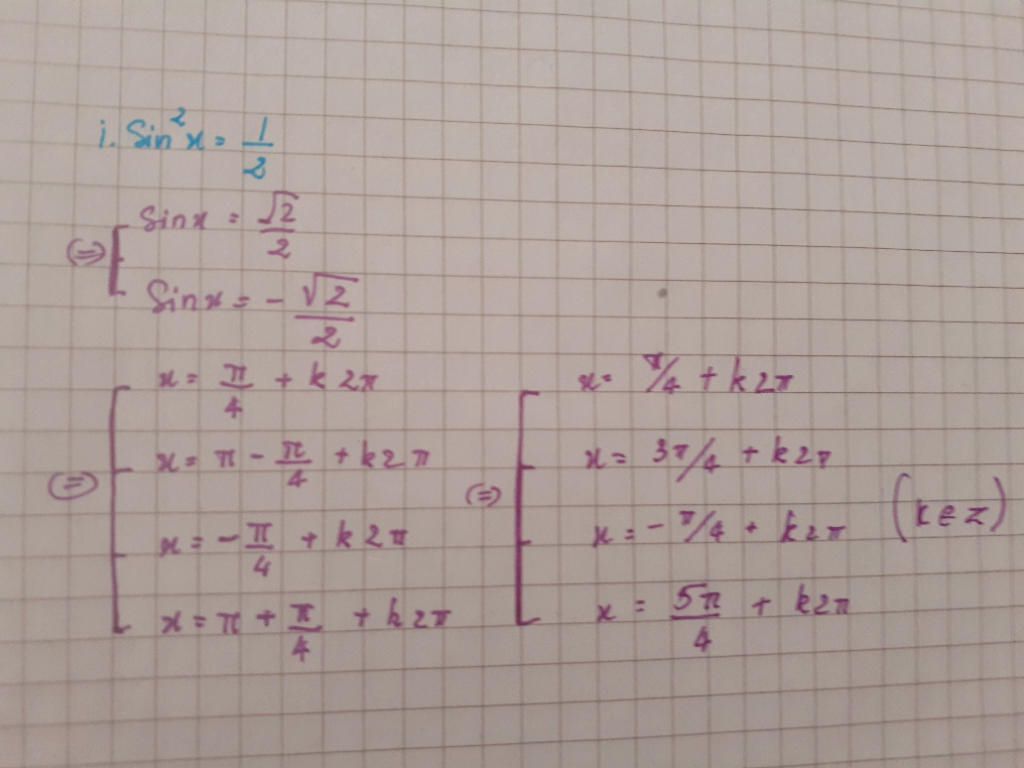 i. Sin²x = 1/2
(=) [ Sinx = √2/2
Sinx = - √2/2
(=) [ x = π/4 + k2π
x = π - π/4 + k2π
x = - π/4 + k2π
x = π + π/4 + k2π
(=) [ x = π/4 + k2π
x = 3π/4 + k2π
x = - π/4 + k2π
x = 5π/4 + k2π
(k∈Z)